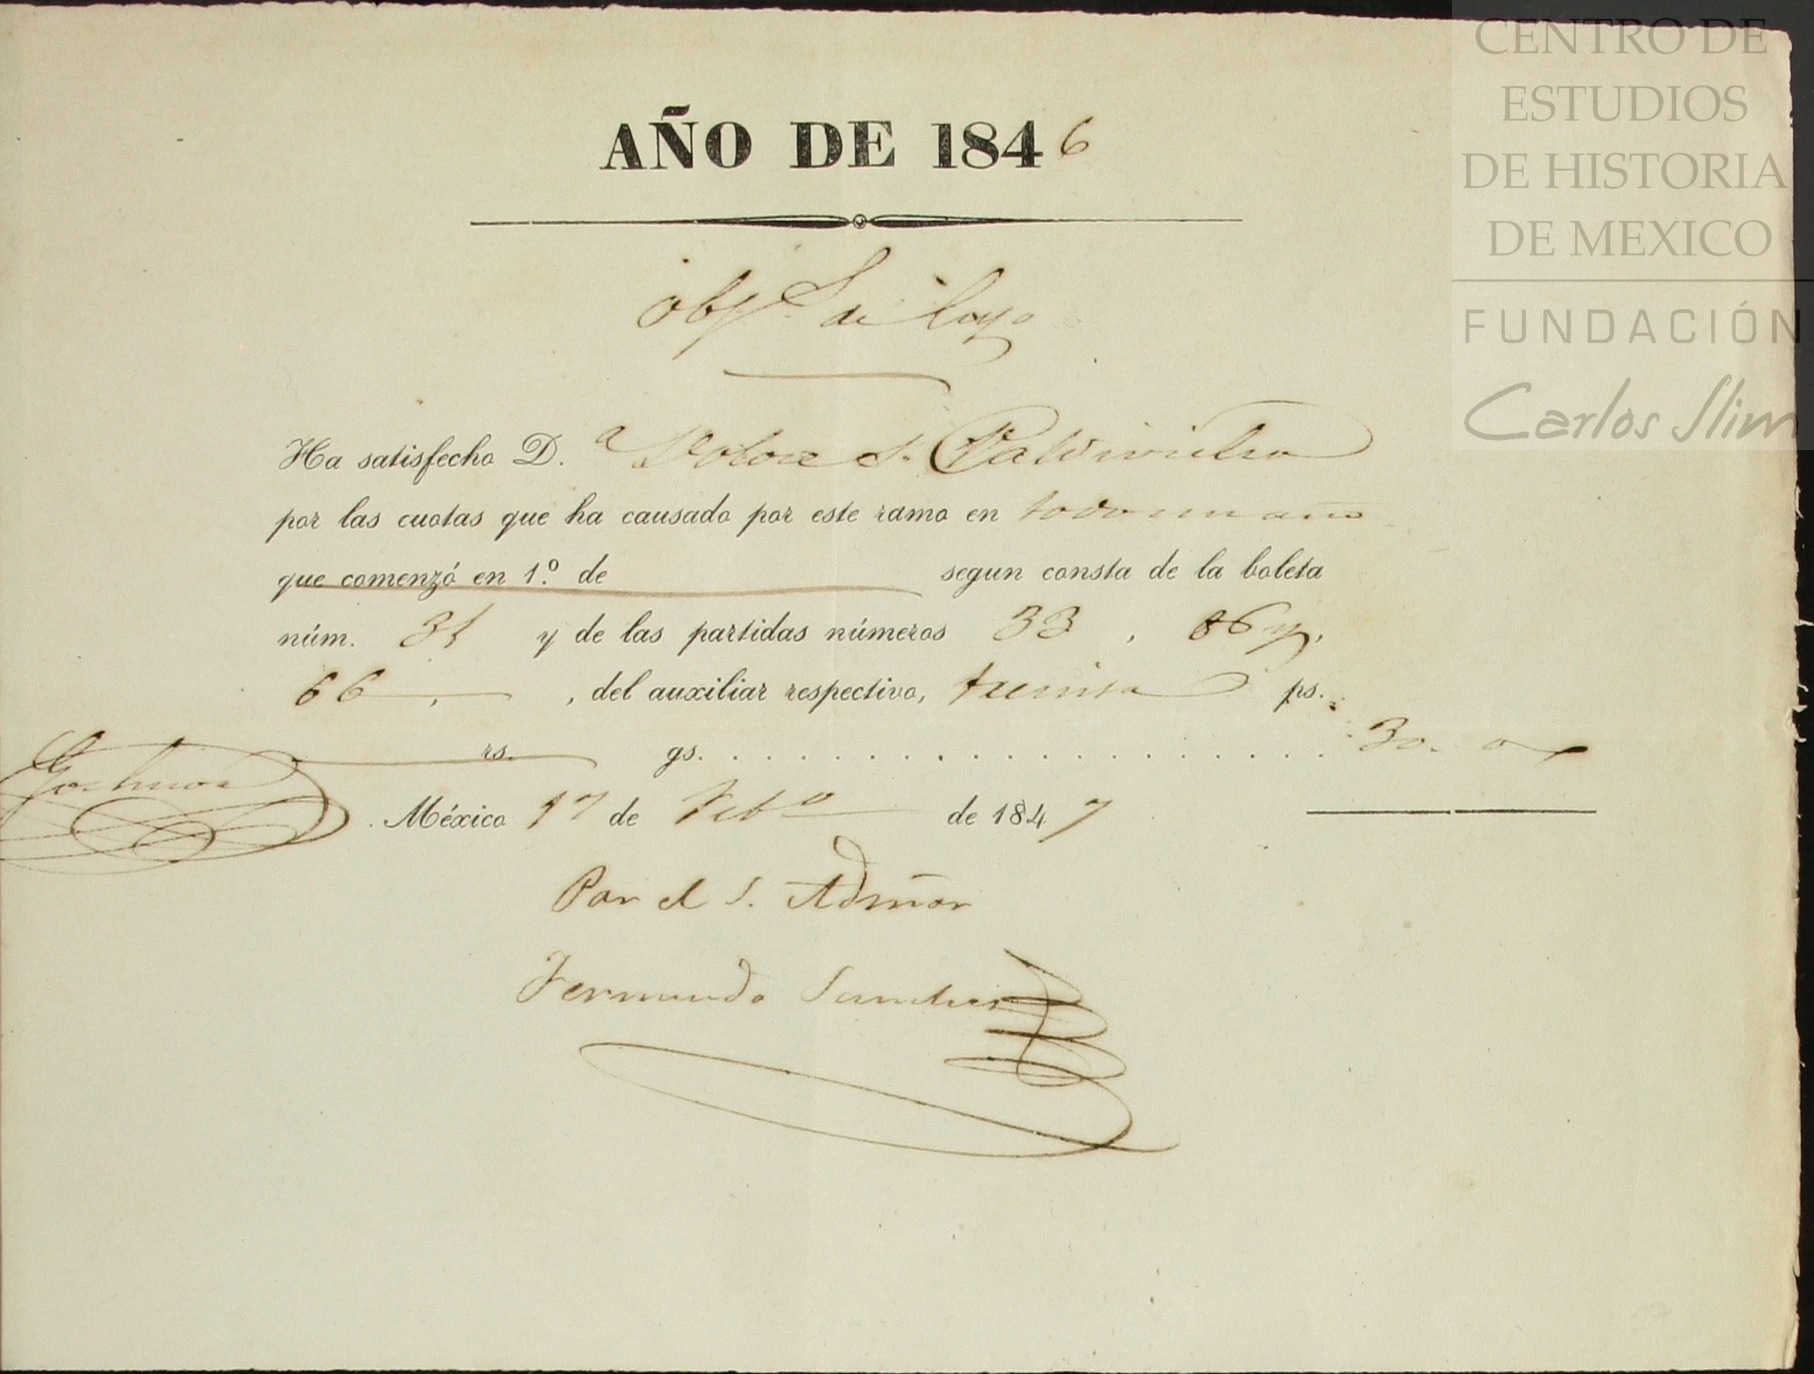 CENTRO DE
ESTUDIOS
DE HISTORIA
DE MEXICO
FUNDACIÓN
Carlos Slim
AÑO DE 1846
Objs. de lujo
Ha satisfecho D.ª Dolores Valdivielso
por las cuotas que ha causado por este ramo en todo un año
que comenzó en 1.º de segun consta de la boleta
núm. 31 y de las partidas números 33, 86 y
66, del auxiliar respectivo, treinta ps.
rs. gs. 30. 0
México 17 de Febº de 1847
Por el S. Admor
Fernando Sanches